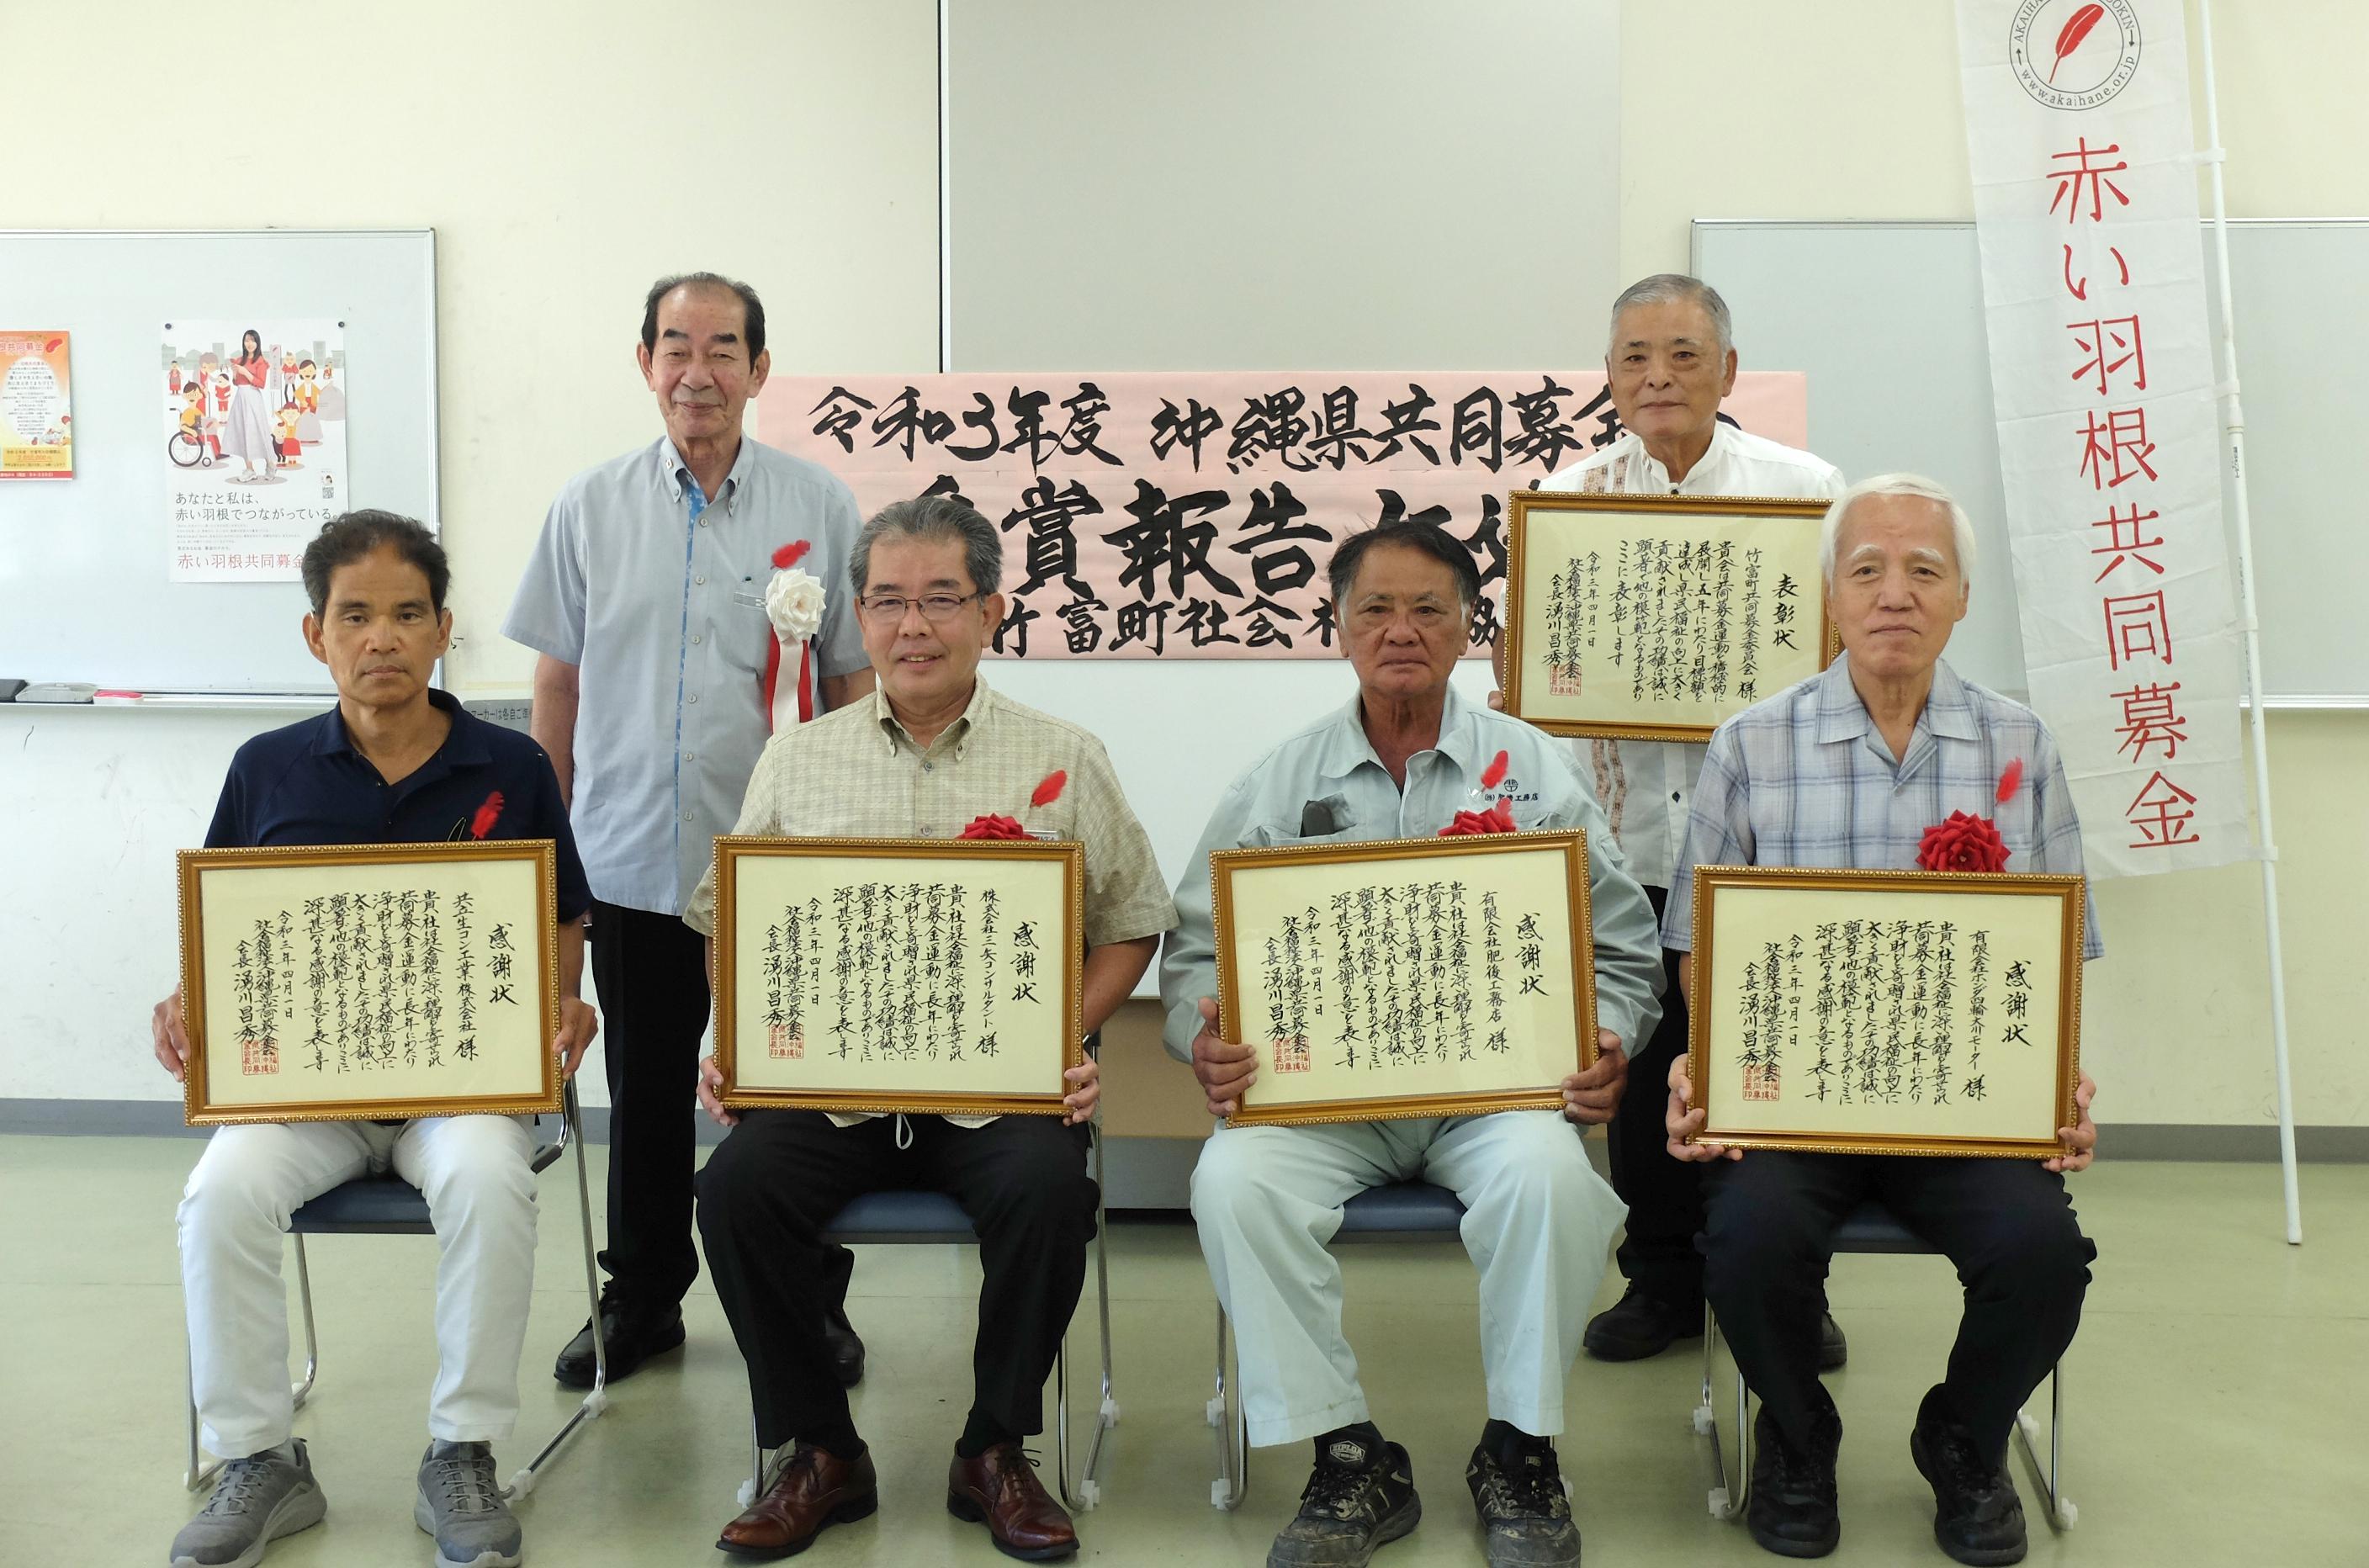 令和3年度 沖縄県共同募金
賞報告
竹富町社会
www.akaihane.or.jp
赤い羽根共同募金
あなたと私は、
赤い羽根でつながっている。
赤い羽根共同募金
表彰状
竹富町共同募金委員会 様
貴会は共同募金運動を積極的に
展開し五年にわたり目標額を
達成し県民福祉の向上に大きく
貢献されましたその功績は誠に
顕著で他の模範となるものであり
ここに表彰します
令和三年四月一日
社会福祉法人沖縄県共同募金会
会長 湧川昌秀
感謝状
共立生コン工業株式会社 様
貴社は社会福祉に深い理解を寄せられ
共同募金運動に長年にわたり
浄財を寄贈され県民福祉の向上に
大きく貢献されましたその功績は誠に
顕著で他の模範となるものでありここに
深甚なる感謝の意を表します
令和三年四月一日
社会福祉法人沖縄県共同募金会
会長 湧川昌秀
感謝状
株式会社三矢コンサルタント 様
貴社は社会福祉に深い理解を寄せられ
共同募金運動に長年にわたり
浄財を寄贈され県民福祉の向上に
大きく貢献されましたその功績は誠に
顕著で他の模範となるものでありここに
深甚なる感謝の意を表します
令和三年四月一日
社会福祉法人沖縄県共同募金会
会長 湧川昌秀
(有)肥後工務店
感謝状
有限会社肥後工務店 様
貴社は社会福祉に深い理解を寄せられ
共同募金運動に長年にわたり
浄財を寄贈され県民福祉の向上に
大きく貢献されましたその功績は誠に
顕著で他の模範となるものでありここに
深甚なる感謝の意を表します
令和三年四月一日
社会福祉法人沖縄県共同募金会
会長 湧川昌秀
感謝状
有限会社ホンダ四輪大川モーター 様
貴社は社会福祉に深い理解を寄せられ
共同募金運動に長年にわたり
浄財を寄贈され県民福祉の向上に
大きく貢献されましたその功績は誠に
顕著で他の模範となるものでありここに
深甚なる感謝の意を表します
令和三年四月一日
社会福祉法人沖縄県共同募金会
会長 湧川昌秀